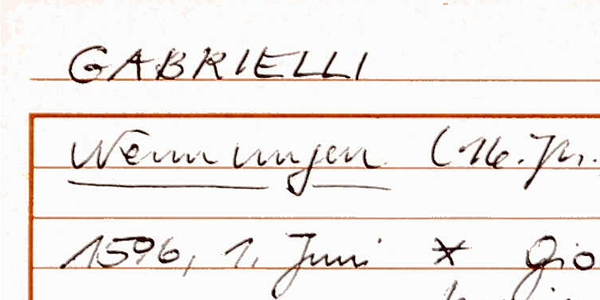 GABRIELLI
Nennungen (16. Jh.
1596, 1. Juni * Gio